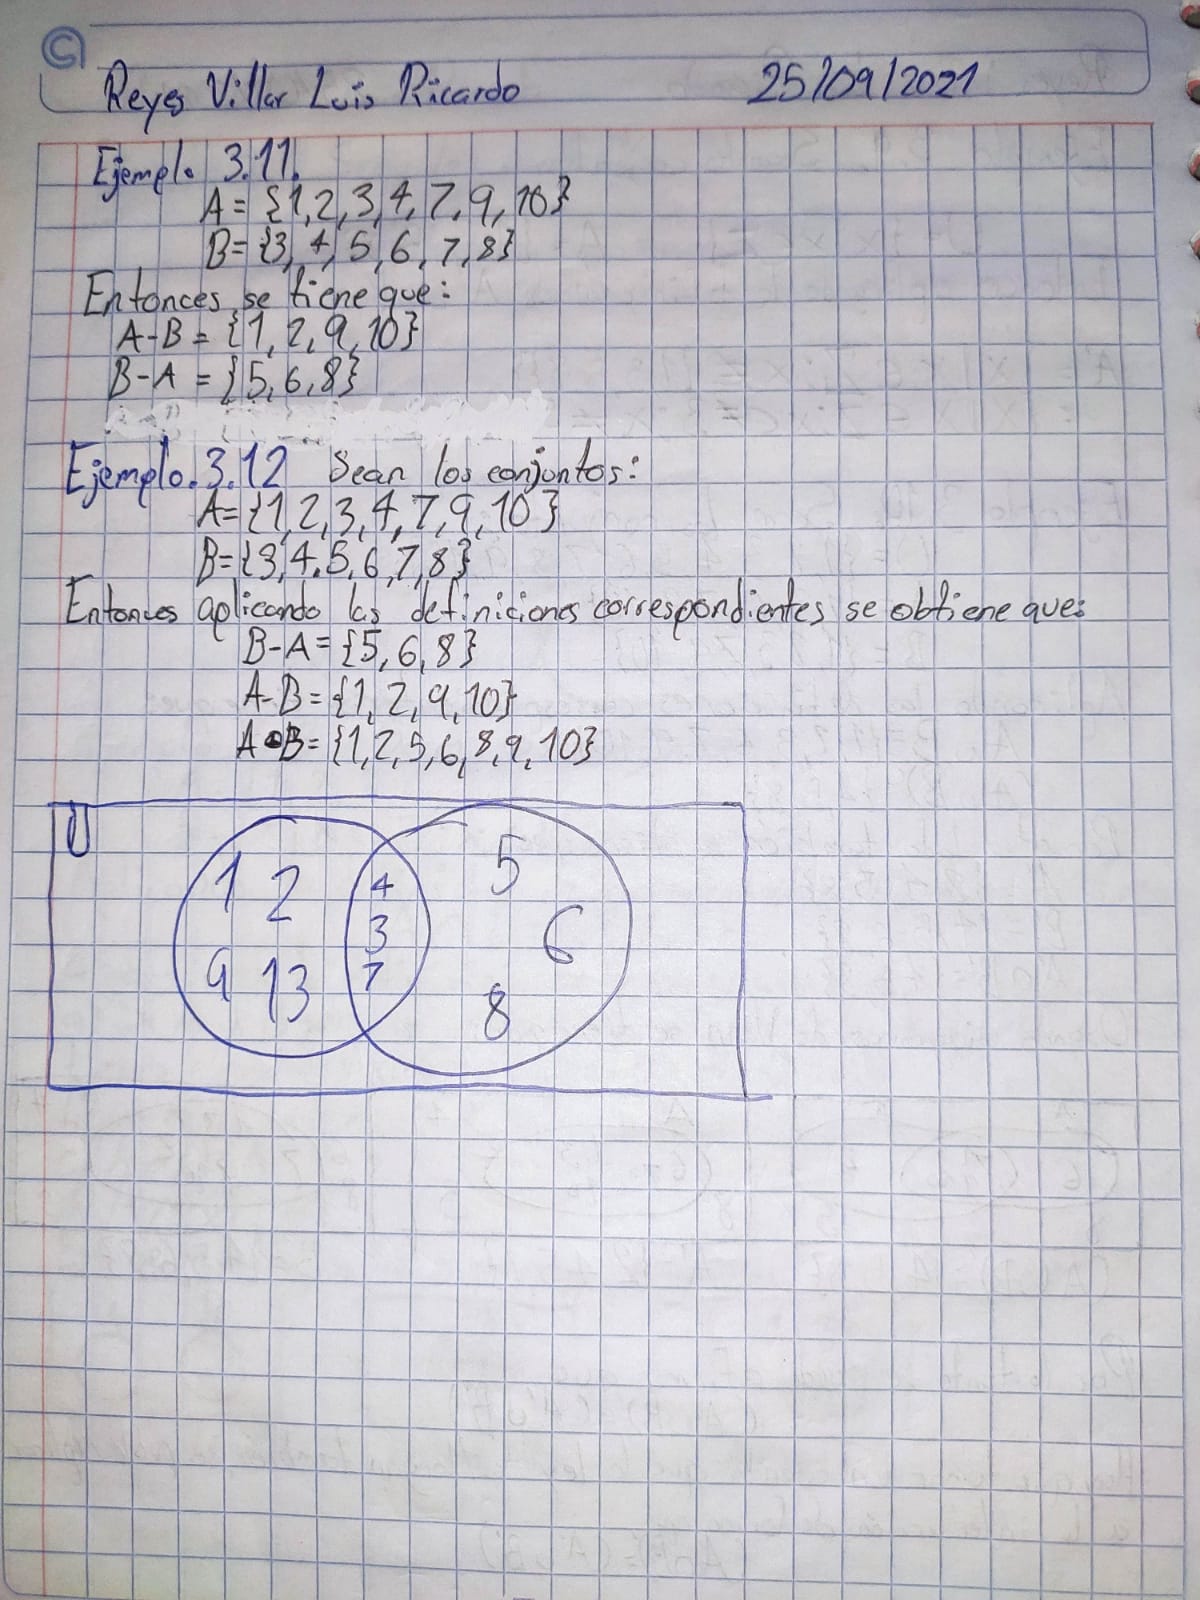 Reyes Villar Luis Ricardo 25/09/2021
Ejemplo 3.11.
A = {1,2,3,4,7,9,10}
B= {3,4,5,6,7,8}
Entonces se tiene que:
A-B = {1,2,9,10}
B-A = {5,6,8}
Ejemplo.3.12 Sean los conjuntos:
A={1,2,3,4,7,9,10}
B={3,4,5,6,7,8}
Entonces aplicando las definiciones correspondientes se obtiene que:
B-A={5,6,8}
A-B={1,2,9,10}
A•B={1,2,5,6,8,9,10}
U
1 2 4 5
3 6
9 13 7 8